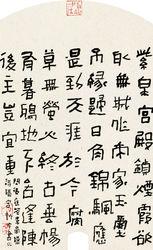 紫泉宮殿鎖煙霞欲
取蕪城作帝家玉璽
不緣歸日角錦帆應
是到天涯於今腐
草無螢火終古垂楊
有暮鴉地下若逢陳
後主豈宜重